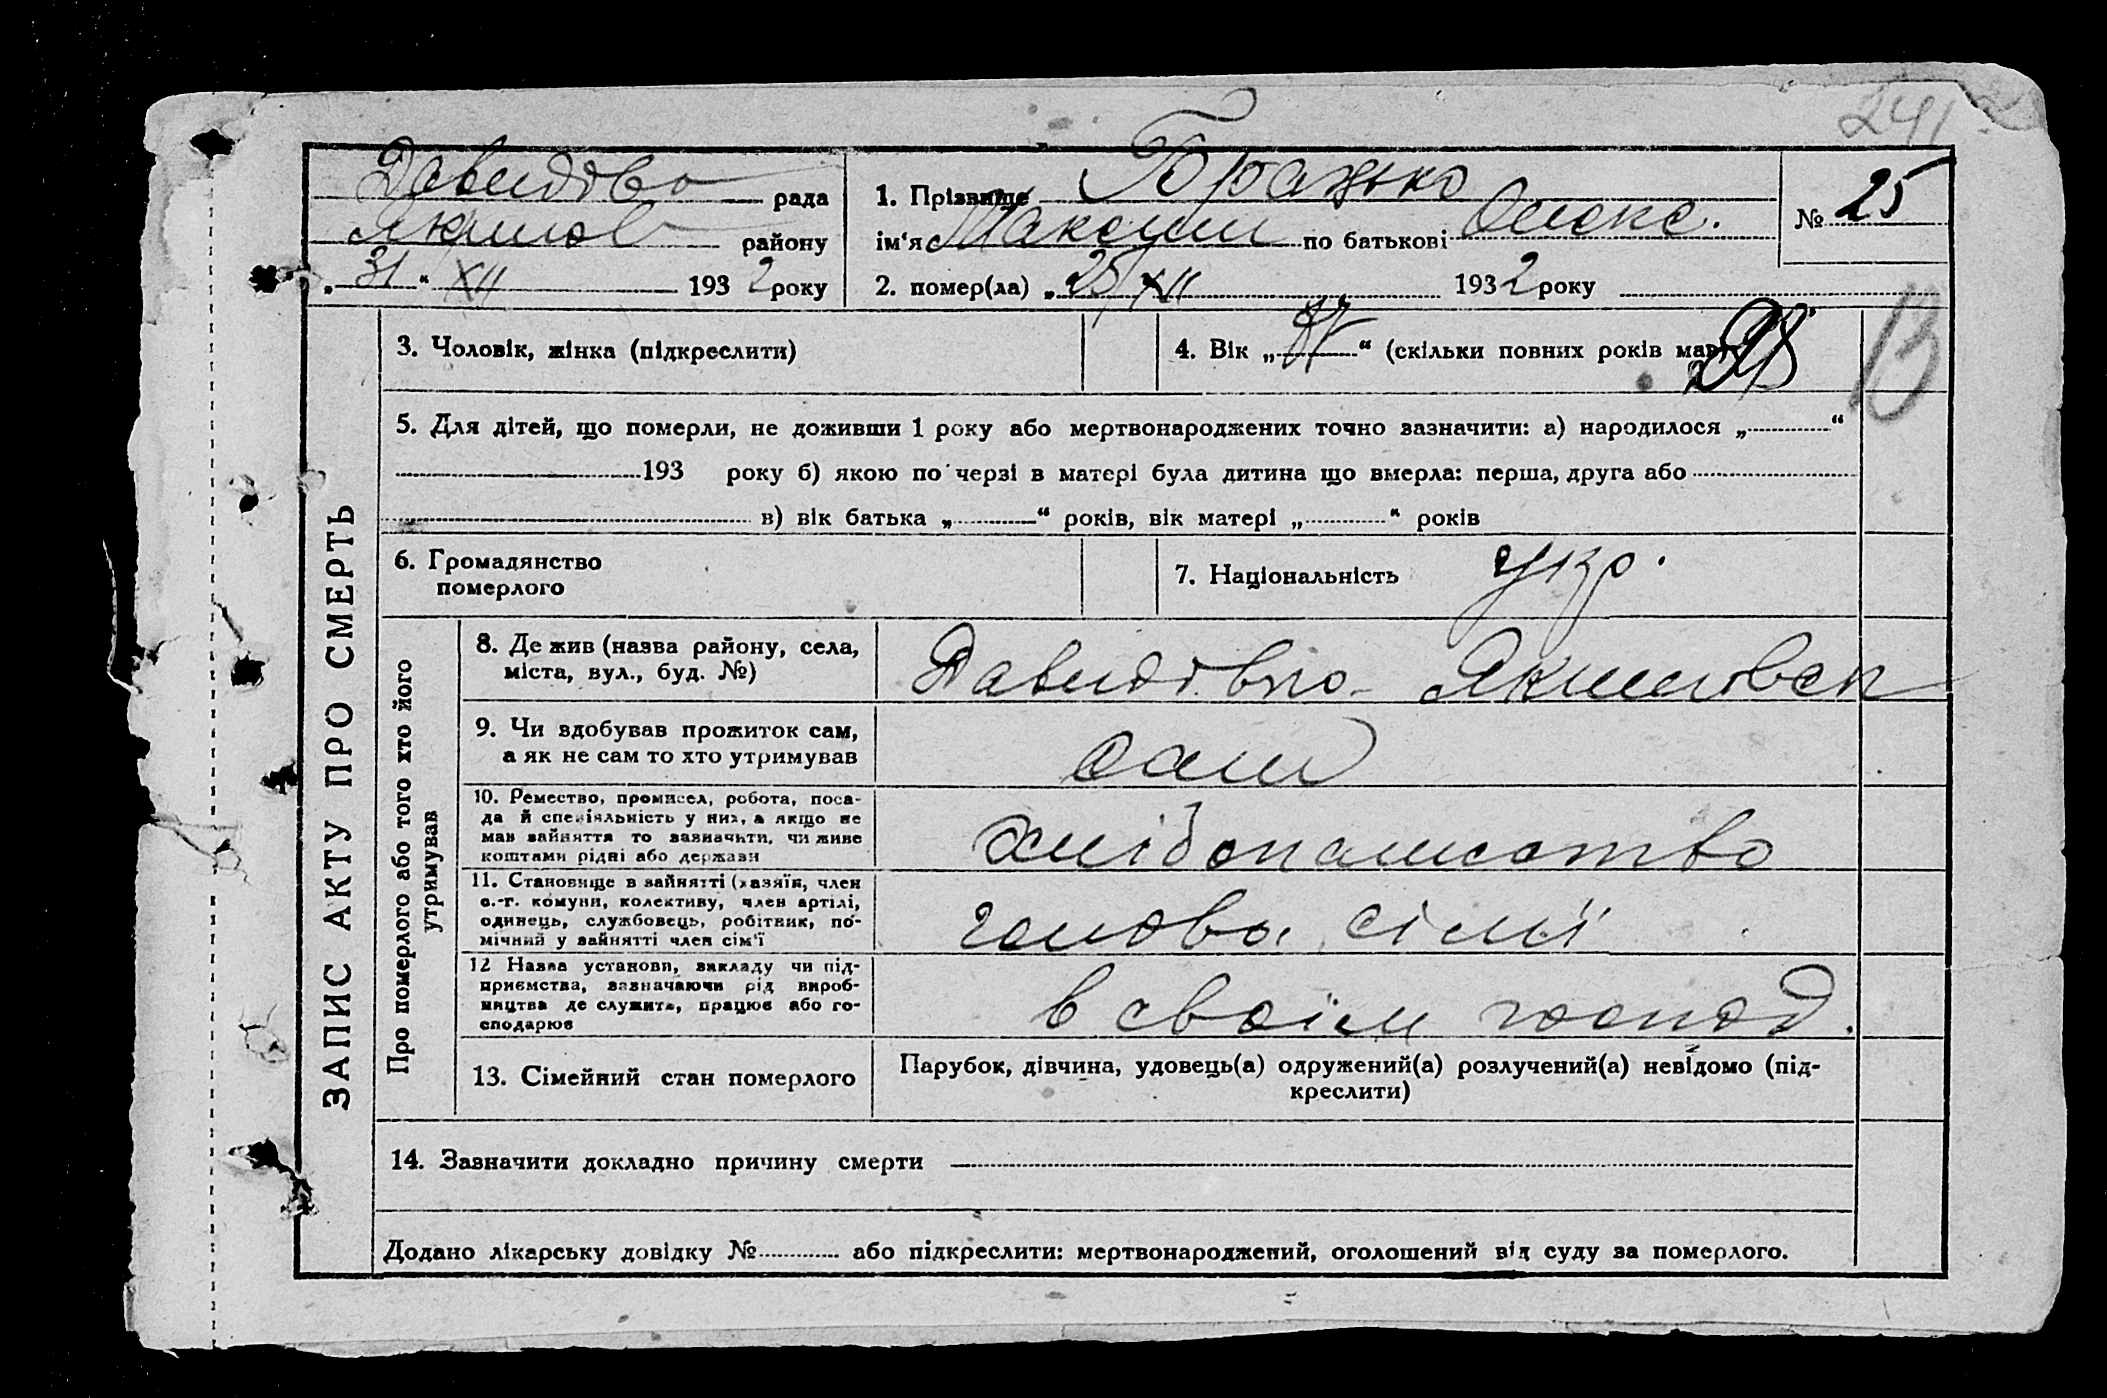 241
Давидово рада
Якимов району
„ 31 “ XII 1932 року
1. Прізвище Брацько
ім‘я Максим по батькові Олекс.
№ 25
2. помер(ла) „ 25 XII 1932 року
3. Чоловік, жінка (підкреслити)
4. Вік „ “ (скільки повних років мав)
13
5. Для дітей, що померли, не доживши 1 року або мертвонароджених точно зазначити: а) народилося „ “
193 року б) якою по черзі в матері була дитина що вмерла: перша, друга або
в) вік батька „ “ років, вік матері „ “ років
6. Громадянство
померлого
7. Національність укр.
ЗАПИС АКТУ ПРО СМЕРТЬ
Про померлого або того хто його
утримував
8. Де жив (назва району, села,
міста, вул., буд. №)
Давидівко Якимовск
9. Чи здобував прожиток сам,
а як не сам то хто утримував
сам
10. Ремество, промисел, робота, поса-
да й спеціяльність у них, а якщо не
мав зайняття то зазначити, чи живе
коштами рідні або держави
хлібопашество
11. Становище в зайнятті (хазяїн, член
с.-г. комуни, колективу, член артілі,
одинець, службовець, робітник, по-
мічний у зайнятті член сім‘ї
голова сімї
12 Назва установи, закладу чи під-
приємства, зазначаючи рід вироб-
ництва де служить, працює або го-
сподарює
в своїм господ.
13. Сімейний стан померлого
Парубок, дівчина, удовець(а) одружений(а) розлучений(а) невідомо (під-
креслити)
14. Зазначити докладно причину смерти
Додано лікарську довідку № або підкреслити: мертвонароджений, оголошений від суду за померлого.